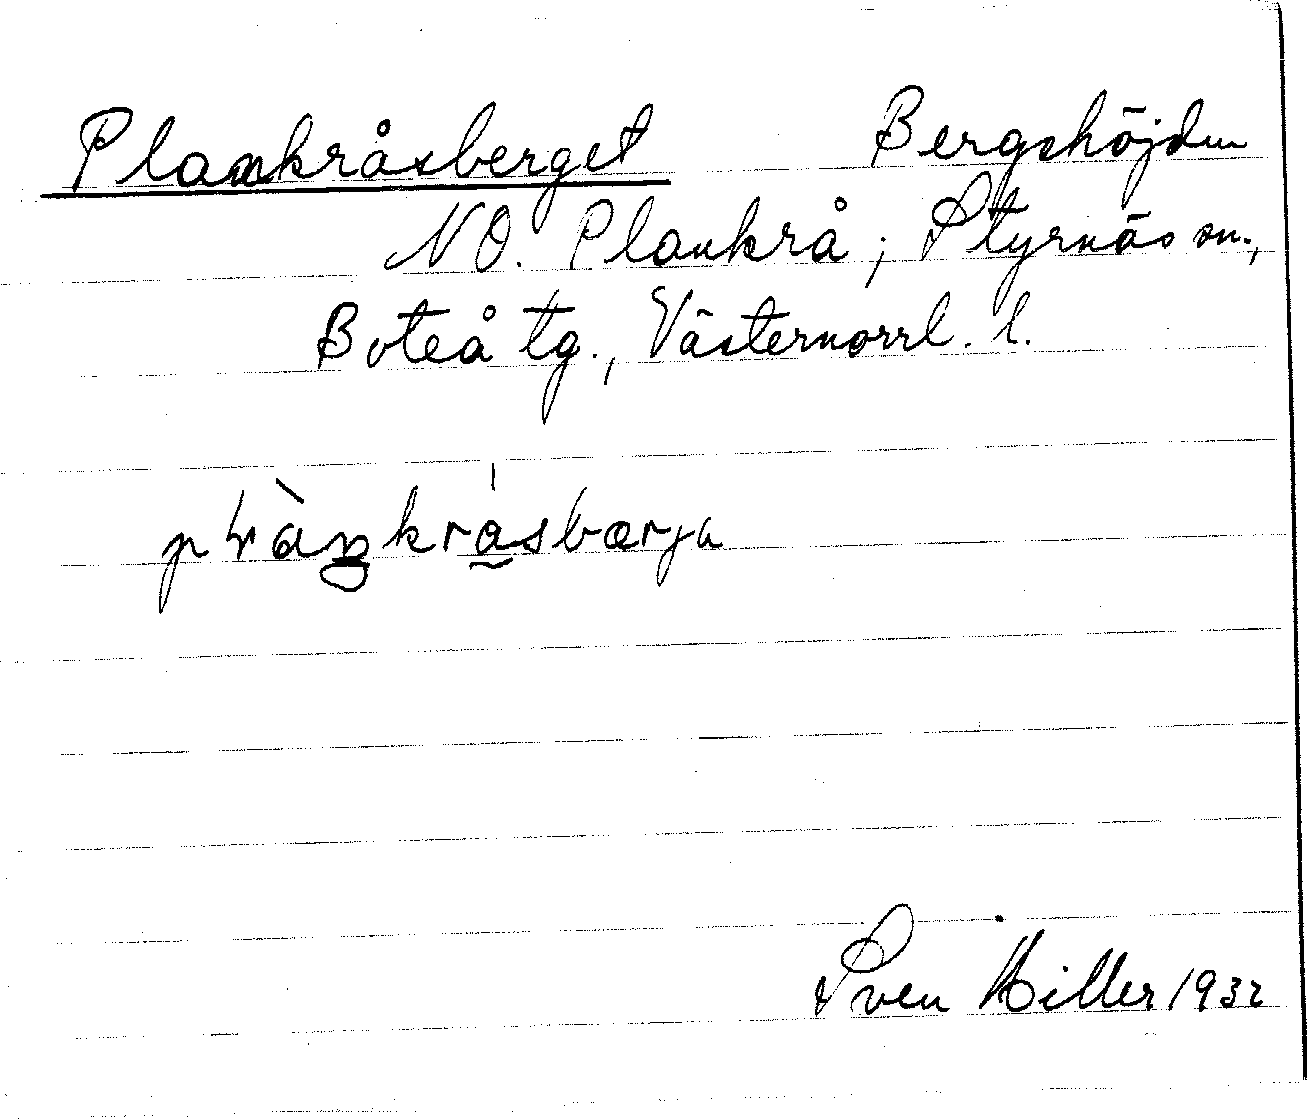 Plankråsberget Bergshöjden
NO. Plankrå; Styrnäs sn.,
Boteå tg., Västernorrl. l.
Sven Hiller 1932